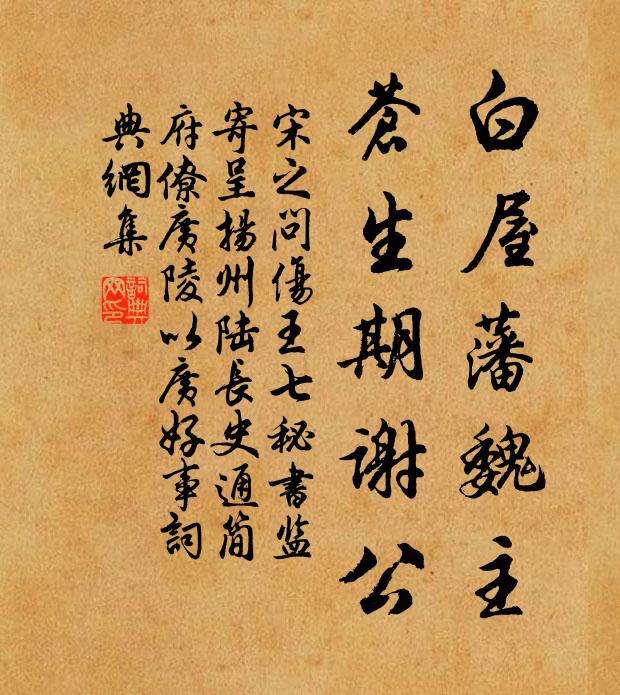 白屋藩魏主
蒼生期謝公
宋之问傷王七秘書监
寄呈揚州陆長史通简
府僚廣陵以廣好事詞
典網集
詞典
网印